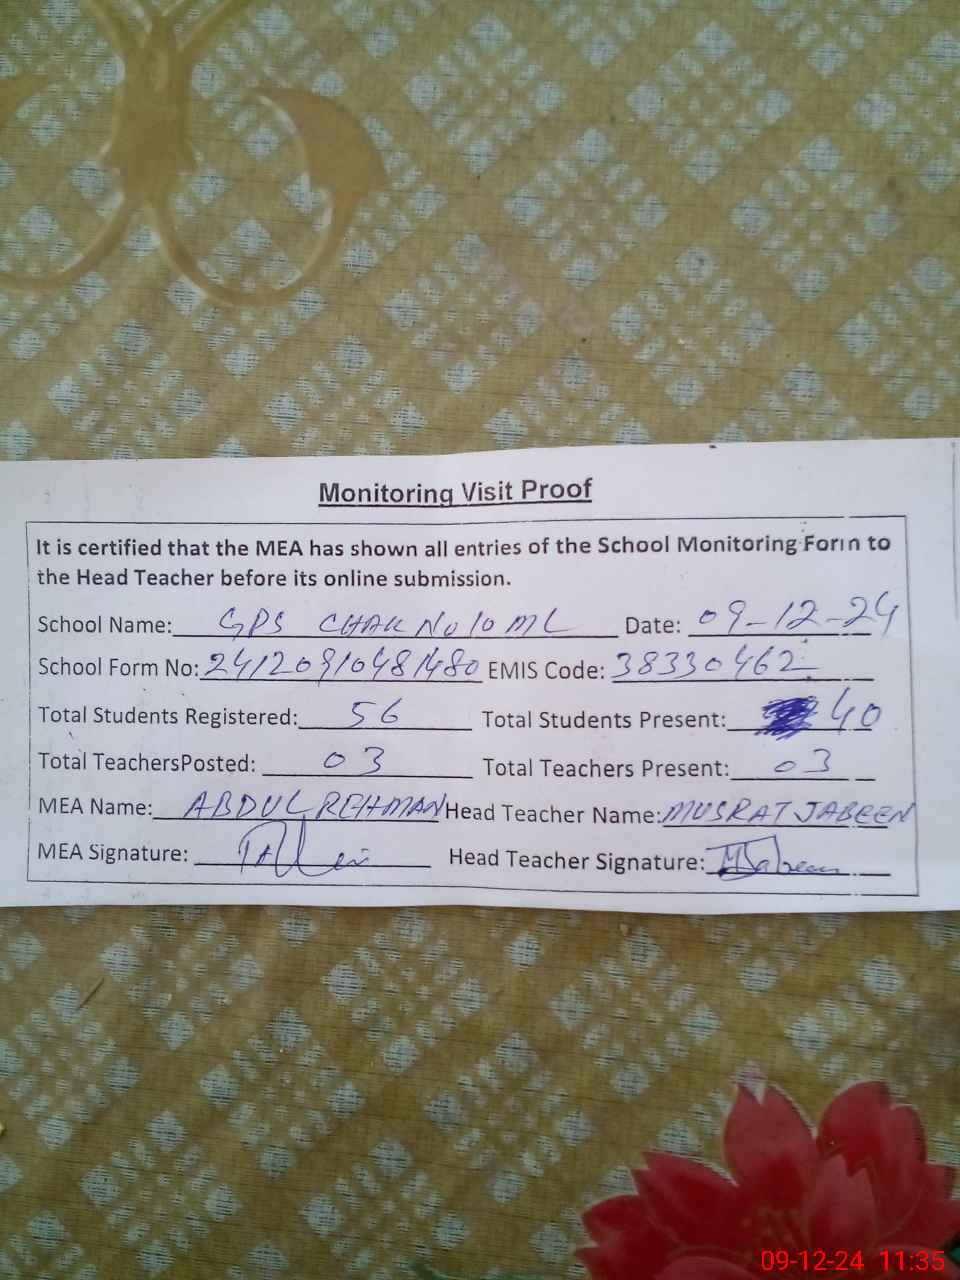 Monitoring Visit Proof
It is certified that the MEA has shown all entries of the School Monitoring Form to
the Head Teacher before its online submission.
School Name: GPS CHAK No 10 ML Date: 09-12-24
School Form No: 24120910481480 EMIS Code: 38330462
Total Students Registered: 56 Total Students Present: 40
Total TeachersPosted: 03 Total Teachers Present: 03
MEA Name: ABDUL REHMAN Head Teacher Name: MUSRAT JABEEN
MEA Signature: Head Teacher Signature: MJabeen
09-12-24 11:35